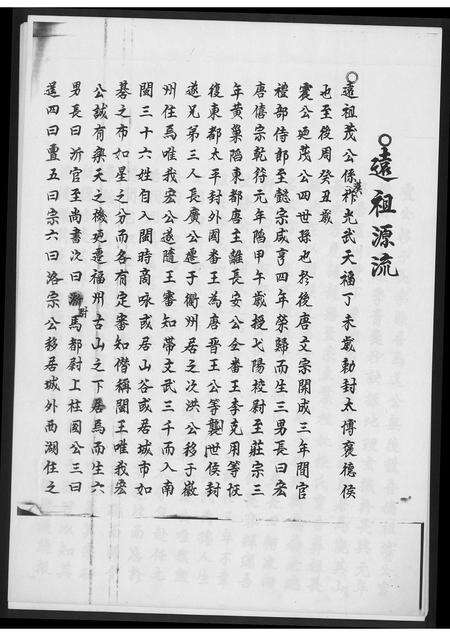 遠祖源流
遠祖茂公係漢祚光武天福丁未歲勅封太博褒德侯
也至後周癸丑歲
震公迺茂公四世孫也於後唐文宗開成三年間官
禮部侍郎至懿宗咸亨四年榮歸而生三男長曰宏
唐僖宗乾符元年陷甲午歲授弋陽校尉至莊宗三
年黃巢陷東都唐主離長安公仝番王李克用等忮
復東都太平封外周番王為唐晉王公等襲世侯封
遂兄弟三人長廣公遷于衢州居之次洪公移于徽
州住焉唯我宏公遂隨王審知帶文武三千而入南
閩三十六姓自入閩時商咏或居山谷或居城市如
碁之布如星之分而各有定審知僭稱閩王唯我宏
公誠有樂天之機迺遷福州古山之下居焉而生六
男長曰沂官至尚書次曰駙馬都尉上柱國公三曰
選四曰豐五曰宗六曰洛宗公移居城外西湖住之